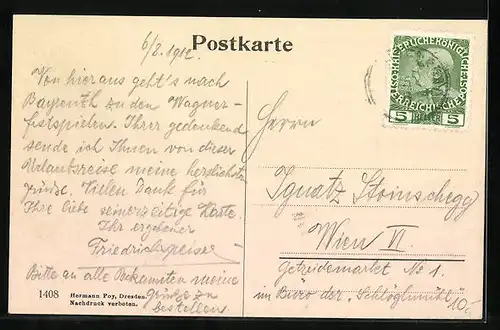 6/8. 1912.
Postkarte
Von hier aus geht's nach
Bayreuth zu den Wagner-
festspielen. Ihrer gedenkend
sende ich Ihnen von dieser
Urlaubsreise meine herzlichsten
Grüße. Vielen Dank für
Ihre liebe seinerzeitige Karte.
Ihr ergebener
Bitte an alle Bekannten meine
Grüße zu
bestellen.
Herrn
Ignatz
Wien VI.
Getreidemarkt No 1.
im Büro der "Schlöglmühl"
10,-
5 HELLER 5
1408 Hermann Poy, Dresden.
Nachdruck verboten.